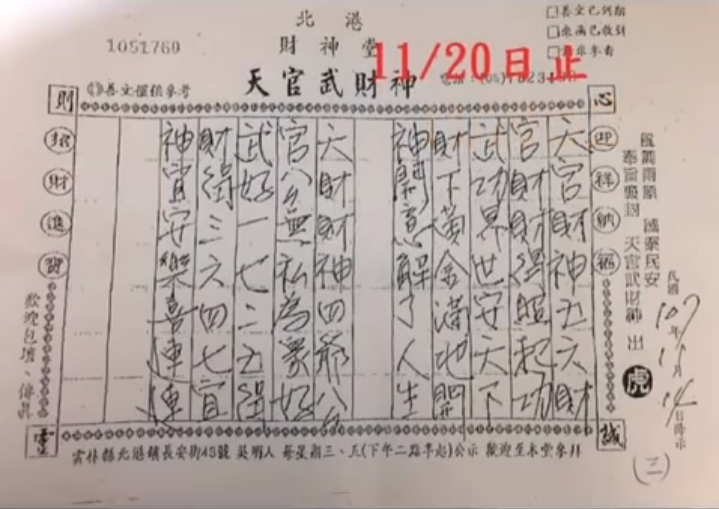 北港
財神堂
天官武財神
1051760
11/20日止
善文僅供參考
□善文已到期
□來函已收到
電話：(05)
心
誠
則
靈
迎祥納福
招財進寶
風調雨順 國泰民安
天官武財神 出
虎
民國107年11月14日降示
(二)
天官財神五六財
官財財得照起功
武功界世安天下
財下黃金滿地開
神開意解了人生
天財財神四爺公
官公無私為眾好
武好一七二五得
財得三六四七宜
神宜安樂喜連連
歡迎包壇、傳真
雲林縣北港鎮長安街48號 吳明人 每星期三、五(下午二點半起)公示 歡迎至本堂參拜